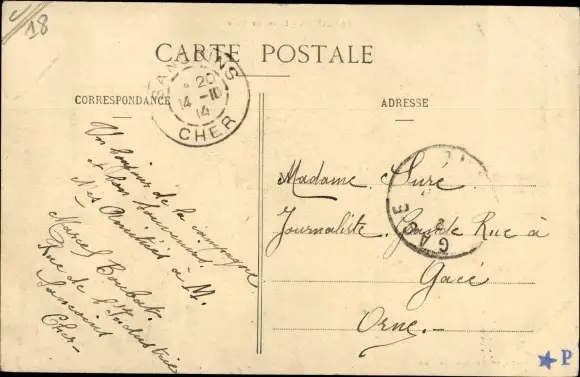 18
CARTE POSTALE
SANCOINS
20
14 - 10
14
CHER
CORRESPONDANCE
ADRESSE
Un bonjour de la campagne
et bon souvenir.
Mes Amitiés à M.
Marcel
Rue de l'Industrie
Sancoins
Cher
Madame Suré
Journaliste, Grande Rue à
Gacé
Orne.
GACE
P